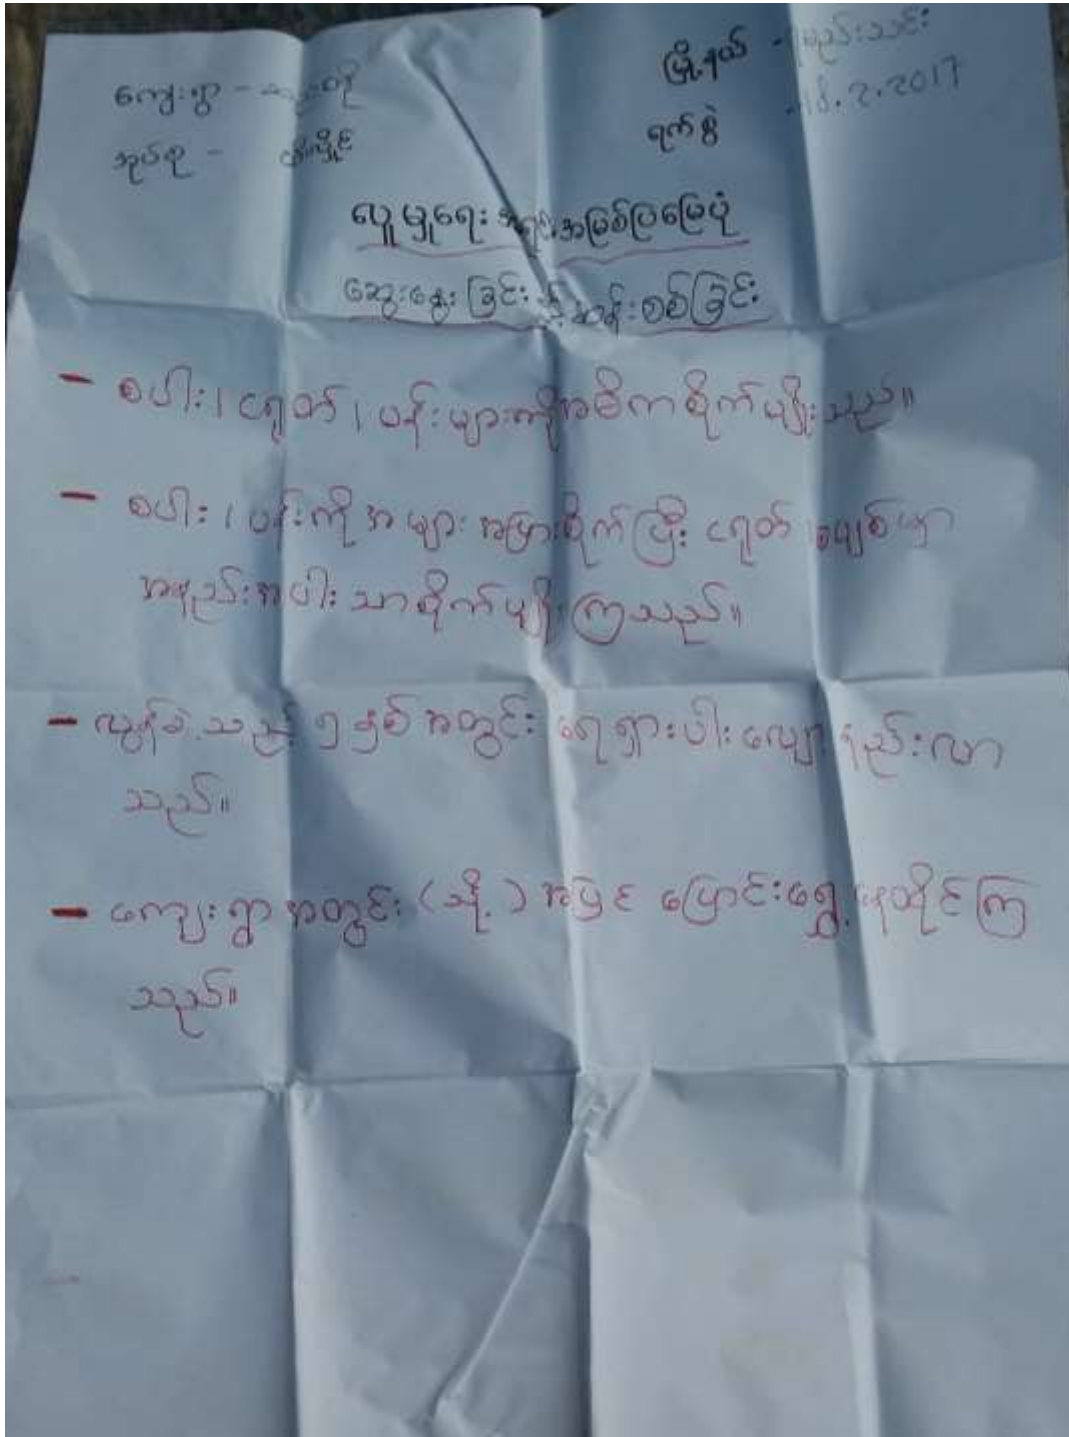 ကျေးရွာ - မြို့နယ် - မည်းသင်း
အုပ်စု - ရက်စွဲ - 18.2.2017
လူမှုရေး အရင်းအမြစ်ပြမြေပုံ
ဆွေးနွေးခြင်း နှင့် ဆန်းစစ်ခြင်း
- စပါး၊ ငရုတ်၊ ပန်းများကိုအဓိကစိုက်ပျိုးသည်။
- စပါး၊ ပန်းကို အများအပြားစိုက်ပြီး ငရုတ်
အနည်းအပါးသာစိုက်ပျိုးကြသည်။
- လွန်ခဲ့သည့် ၅ နှစ်အတွင်း ရေရှားပါးလျော့နည်းလာ
သည်။
- ကျေးရွာအတွင်း (သို့) အပြင် ပြောင်းရွှေ့နေထိုင်ကြ
သည်။